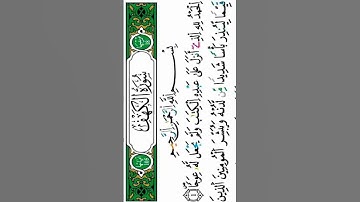 سُورَةُ الْكَهْفِ
بِسْمِ اللَّهِ الرَّحْمَٰنِ الرَّحِيمِ
الْحَمْدُ لِلَّهِ الَّذِي أَنزَلَ عَلَىٰ عَبْدِهِ الْكِتَابَ وَلَمْ يَجْعَل لَّهُ عِوَجًا ١
قَيِّمًا لِّيُنذِرَ بَأْسًا شَدِيدًا مِّن لَّدُنْهُ وَيُبَشِّرَ الْمُؤْمِنِينَ الَّذِينَ